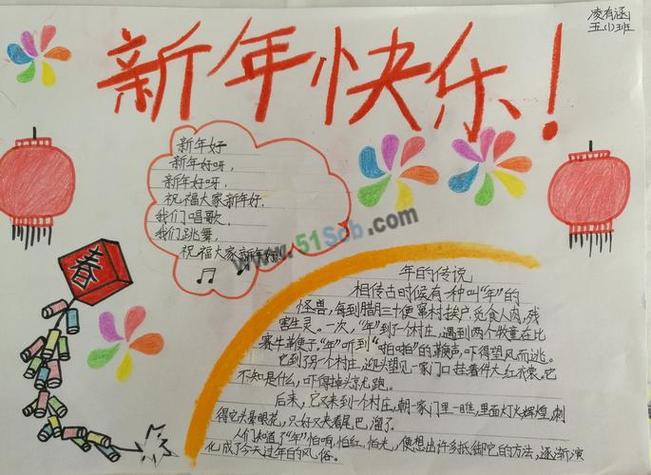 新年快乐!
凌有涵
五(1)班
新年好
新年好呀,
新年好呀,
祝福大家新年好.
我们唱歌,
我们跳舞,
祝福大家新年好.
www.51Scb.com
春
年的传说
相传古时候有一种叫“年”的
怪兽,每到腊月三十便窜村挨户,觅食人肉,残
害生灵。一次,“年”到了个村庄,遇到两个牧童在比
赛牛鞭子,“年”听到“啪啪”的鞭声,吓得望风而逃。
它到了另一个村庄,迎头望见一家门口挂着件大红衣裳。它
不知是什么,吓得掉头就跑。
后来,它又来到一个村庄,朝一家门里一瞧,里面灯火辉煌,刺
得它头晕眼花,只好又夹着尾巴溜了。
人们知道了“年”怕响,怕红,怕光,便想出许多抵御它的方法,逐渐演
化成了今天过年的风俗。